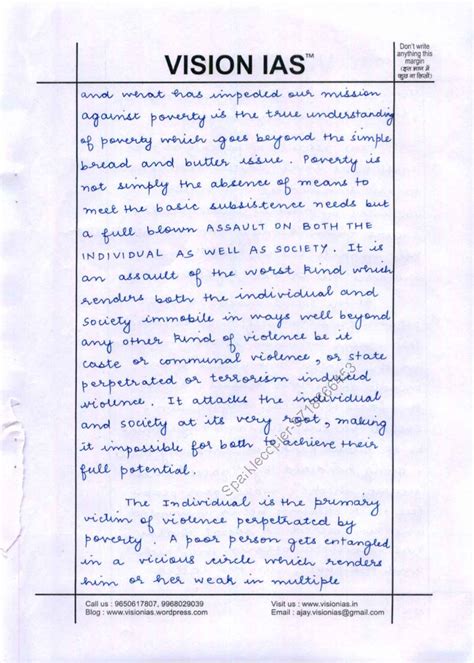 VISION IAS™
Don't write
anything this
margin
(इस भाग में
कुछ ना लिखें)
and what has impeded our mission
against poverty is the true understanding
of poverty which goes beyond the simple
bread and butter issue. Poverty is
not simply the absence of means to
meet the basic subsistence needs but
a full blown ASSAULT ON BOTH THE
INDIVIDUAL AS WELL AS SOCIETY. It is
an assault of the worst kind which
renders both the individual and
society immobile in ways well beyond
any other kind of violence be it
caste or communal violence, or state
perpetrated or terrorism induced
violence. It attacks the individual
and society at its very root, making
it impossible for both to achieve their
full potential.
The Individual is the primary
victim of violence perpetrated by
poverty. A poor person gets entangled
in a vicious circle which renders
him or her weak in multiple
Call us : 9650617807, 9968029039
Visit us : www.visionias.in
Blog : www.visionias.wordpress.com
Email : ajay.visionias@gmail.com